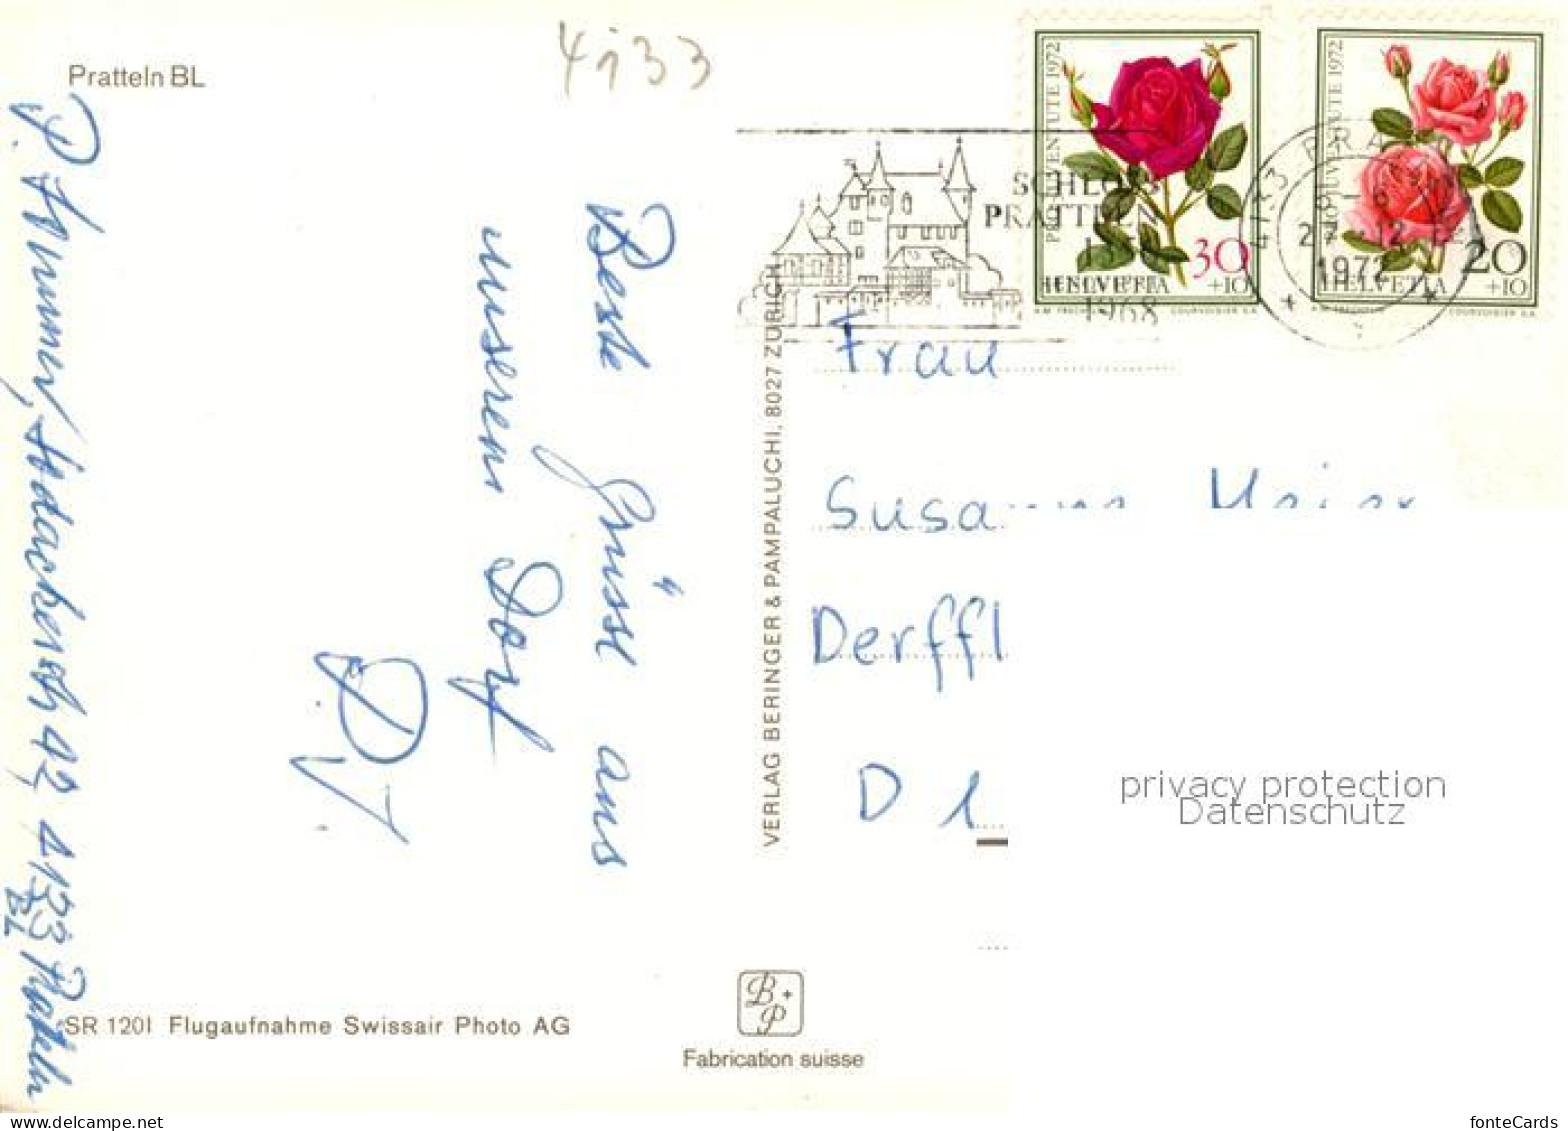 4133
Pratteln BL
PRO JUVENTUTE 1972
30
+10
HELVETIA
COURVOISIER S.A.
PRO JUVENTUTE 1972
20
+10
HELVETIA
COURVOISIER S.A.
SCHLOSS
PRATTELN
1968
4133 PRA
27. 12.
1972
Beste Grüsse aus
unserem Dorf
4133 Pratteln
BL
VERLAG BERINGER & PAMPALUCHI, 8027 ZÜRICH
Frau
Susanne Meier
Derffl
D 1
privacy protection
Datenschutz
SR 1201 Flugaufnahme Swissair Photo AG
B+P
Fabrication suisse
www.delcampe.net
fonteCards